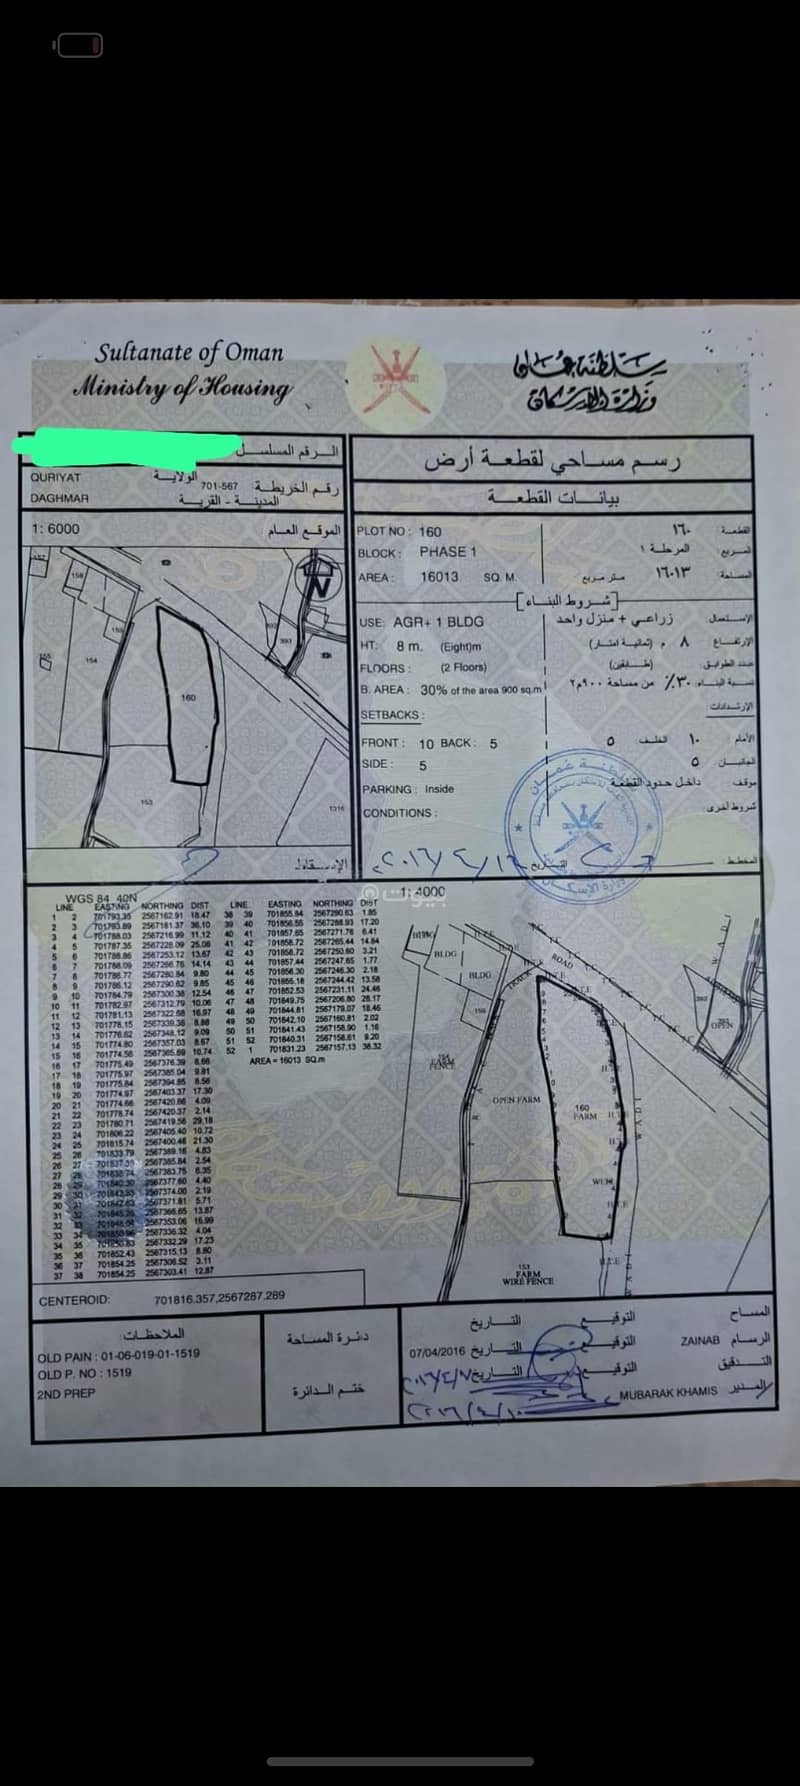 Sultanate of Oman
Ministry of Housing
سلطنة عمان
وزارة الإسكان
الرقم المسلسل
QURIYAT
الولاية
701-567
رقم الخريطة
DAGHMAR
المدينة - القرية
1: 6000
الموقع العام
N
158
154
155
160
393
153
1316
الإسقاط
رسم مساحي لقطعة أرض
بيانات القطعة
PLOT NO : 160
١٦٠
القطعة
BLOCK : PHASE 1
المرحلة ١
المربع
AREA : 16013 SQ. M.
متر مربع ١٦٠١٣
المساحة
[شروط البناء]
USE: AGR+ 1 BLDG
زراعي + منزل واحد
الإستعمال
HT: 8 m. (Eight)m
٨ م (ثمانية امتار)
الإرتفاع
FLOORS : (2 Floors)
(طابقين)
عدد الطوابق
B. AREA : 30% of the area 900 sq.m
٣٠٪ من مساحة ٩٠٠م٢
نسبة البناء
SETBACKS :
الإرتدادات
FRONT : 10 BACK : 5
الأمام ١٠ الخلف ٥
SIDE : 5
الجانبان ٥
PARKING : Inside
موقف داخل حدود القطعة
CONDITIONS :
شروط أخرى
المخطط
التاريخ
بيوت
1: 4000
WGS 84 40N
LINE EASTING NORTHING DIST LINE EASTING NORTHING DIST
1 2 701793.35 2567162.91 18.47 38 39 701855.84 2567290.63 1.85
2 3 701793.89 2567181.37 36.10 39 40 701856.55 2567288.93 17.20
3 4 701788.03 2567216.99 11.12 40 41 701857.65 2567271.76 6.41
4 5 701787.35 2567228.09 25.08 41 42 701858.72 2567265.44 14.84
5 6 701788.86 2567253.12 13.67 42 43 701858.72 2567250.60 3.21
6 7 701788.09 2567266.76 14.14 43 44 701857.44 2567247.65 1.77
7 8 701786.77 2567280.84 9.80 44 45 701856.30 2567246.30 2.18
8 9 701786.12 2567290.62 9.85 45 46 701855.18 2567244.42 13.58
9 10 701784.79 2567300.38 12.54 46 47 701852.53 2567231.11 24.46
10 11 701782.97 2567312.79 10.06 47 48 701849.75 2567206.80 28.17
11 12 701781.13 2567322.68 16.97 48 49 701844.81 2567179.07 18.46
12 13 701778.15 2567339.38 8.88 49 50 701842.10 2567160.81 2.02
13 14 701776.62 2567348.12 9.09 50 51 701841.43 2567158.90 1.16
14 15 701774.80 2567357.03 8.67 51 52 701840.31 2567158.61 9.20
15 16 701774.56 2567365.69 10.74 52 1 701831.23 2567157.13 38.32
16 17 701775.49 2567376.39 8.66
AREA = 16013 SQ.m
17 18 701775.97 2567385.04 9.81
18 19 701775.84 2567394.85 8.56
19 20 701774.97 2567403.37 17.30
20 21 701774.66 2567420.66 4.09
21 22 701778.74 2567420.37 2.14
22 23 701780.71 2567419.56 29.18
23 24 701806.22 2567405.40 10.72
24 25 701815.74 2567400.48 21.30
25 26 701833.79 2567389.16 4.83
26 27 2567385.84 2.54
27 28 2567383.75 6.35
28 29 2567377.60 4.40
29 30 2567374.00 2.19
30 31 2567371.81 5.71
31 32 2567366.65 13.87
32 33 2567353.06 16.99
33 34 2567336.32 4.04
34 35 2567332.29 17.23
35 36 701852.43 2567315.13 8.80
36 37 701854.25 2567306.52 3.11
37 38 701854.25 2567303.41 12.87
BLDG
BLDG
ROAD
OPEN FARM
FARM
FENCE
160
FARM
WADI
WADI
OPEN
153
FARM
WIRE FENCE
CENTEROID: 701816.357,2567287.289
الملاحظات:
OLD PAIN : 01-06-019-01-1519
OLD P. NO : 1519
2ND PREP
دائرة المساحة
ختم الدائرة
المساح
التوقيع
التاريخ
الرسام ZAINAB
التوقيع
التاريخ 07/04/2016
التدقيق
التوقيع
التاريخ
المدير MUBARAK KHAMIS